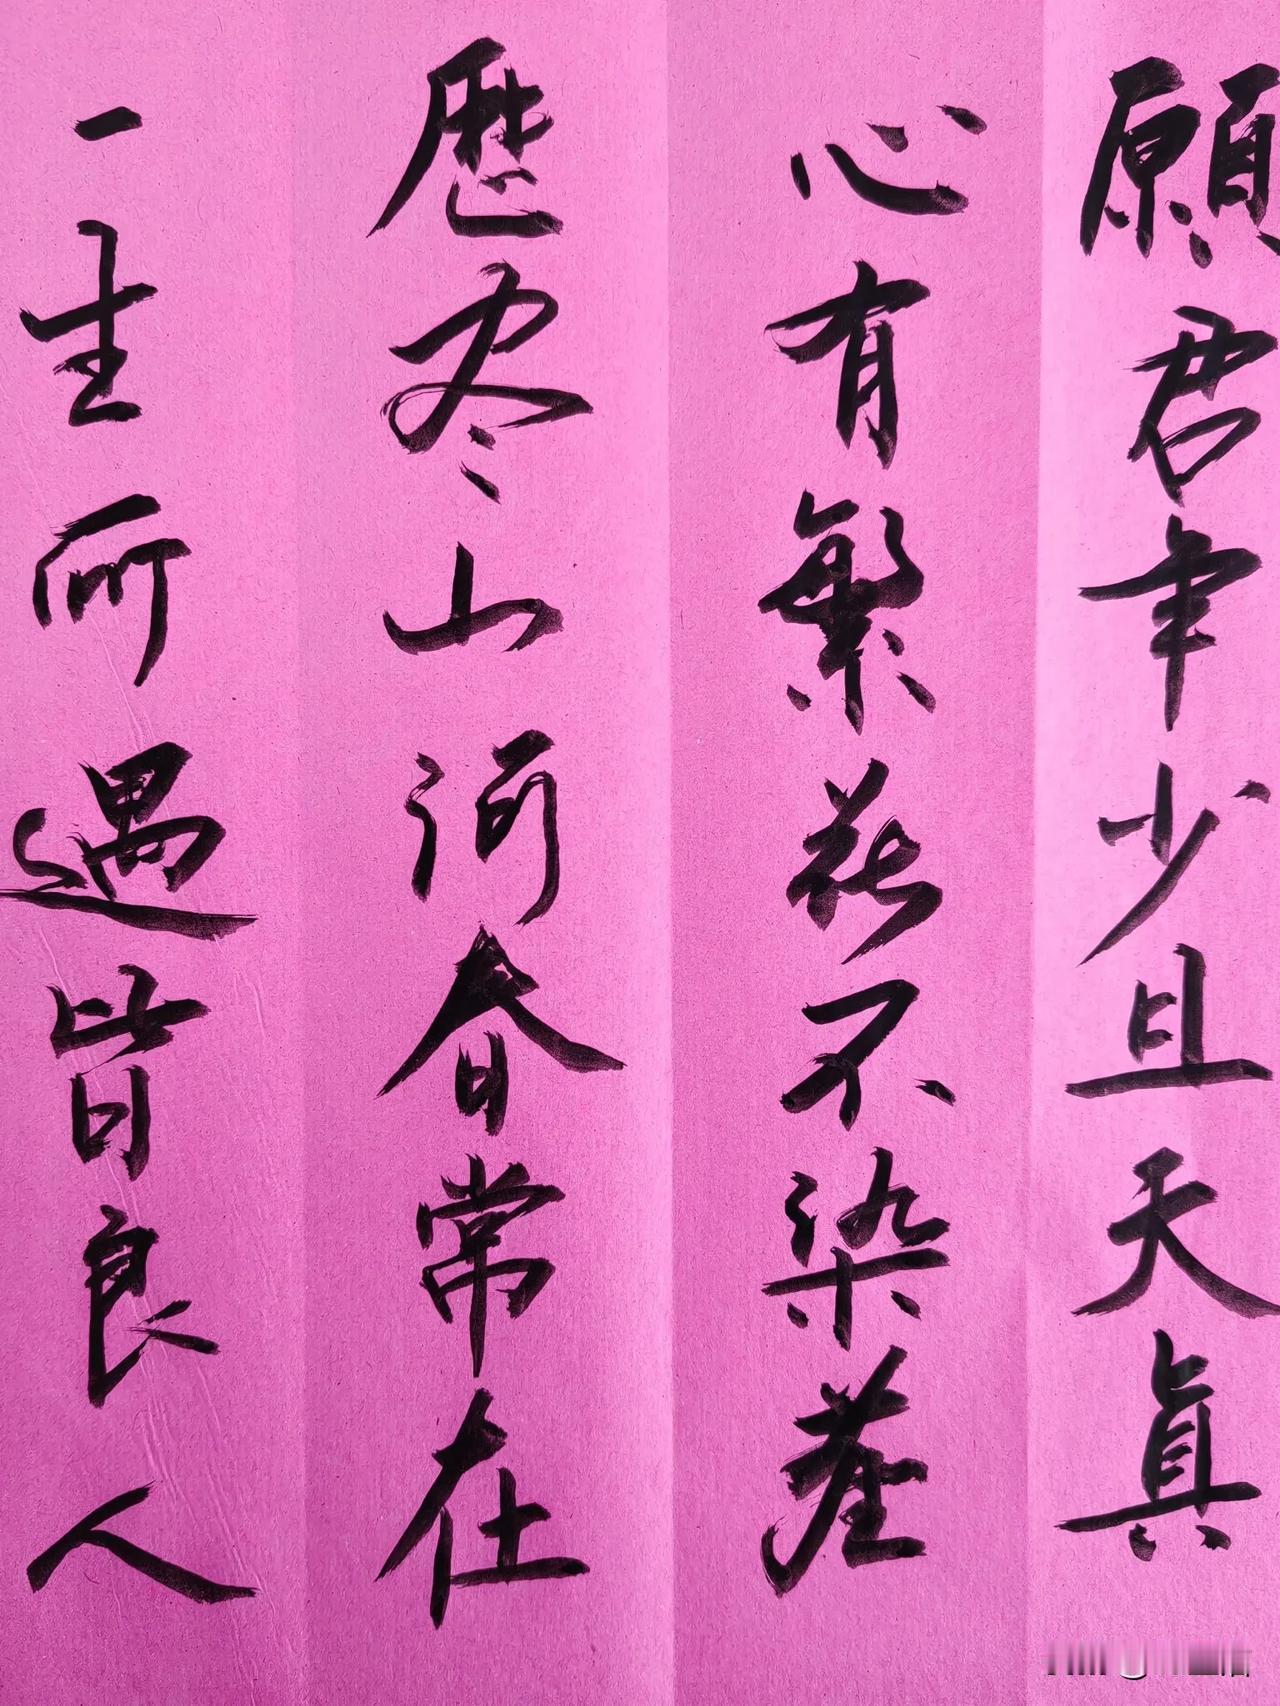 願君年少且天真
心有繁花不染塵
歷尽山河春常在
一生所遇皆良人